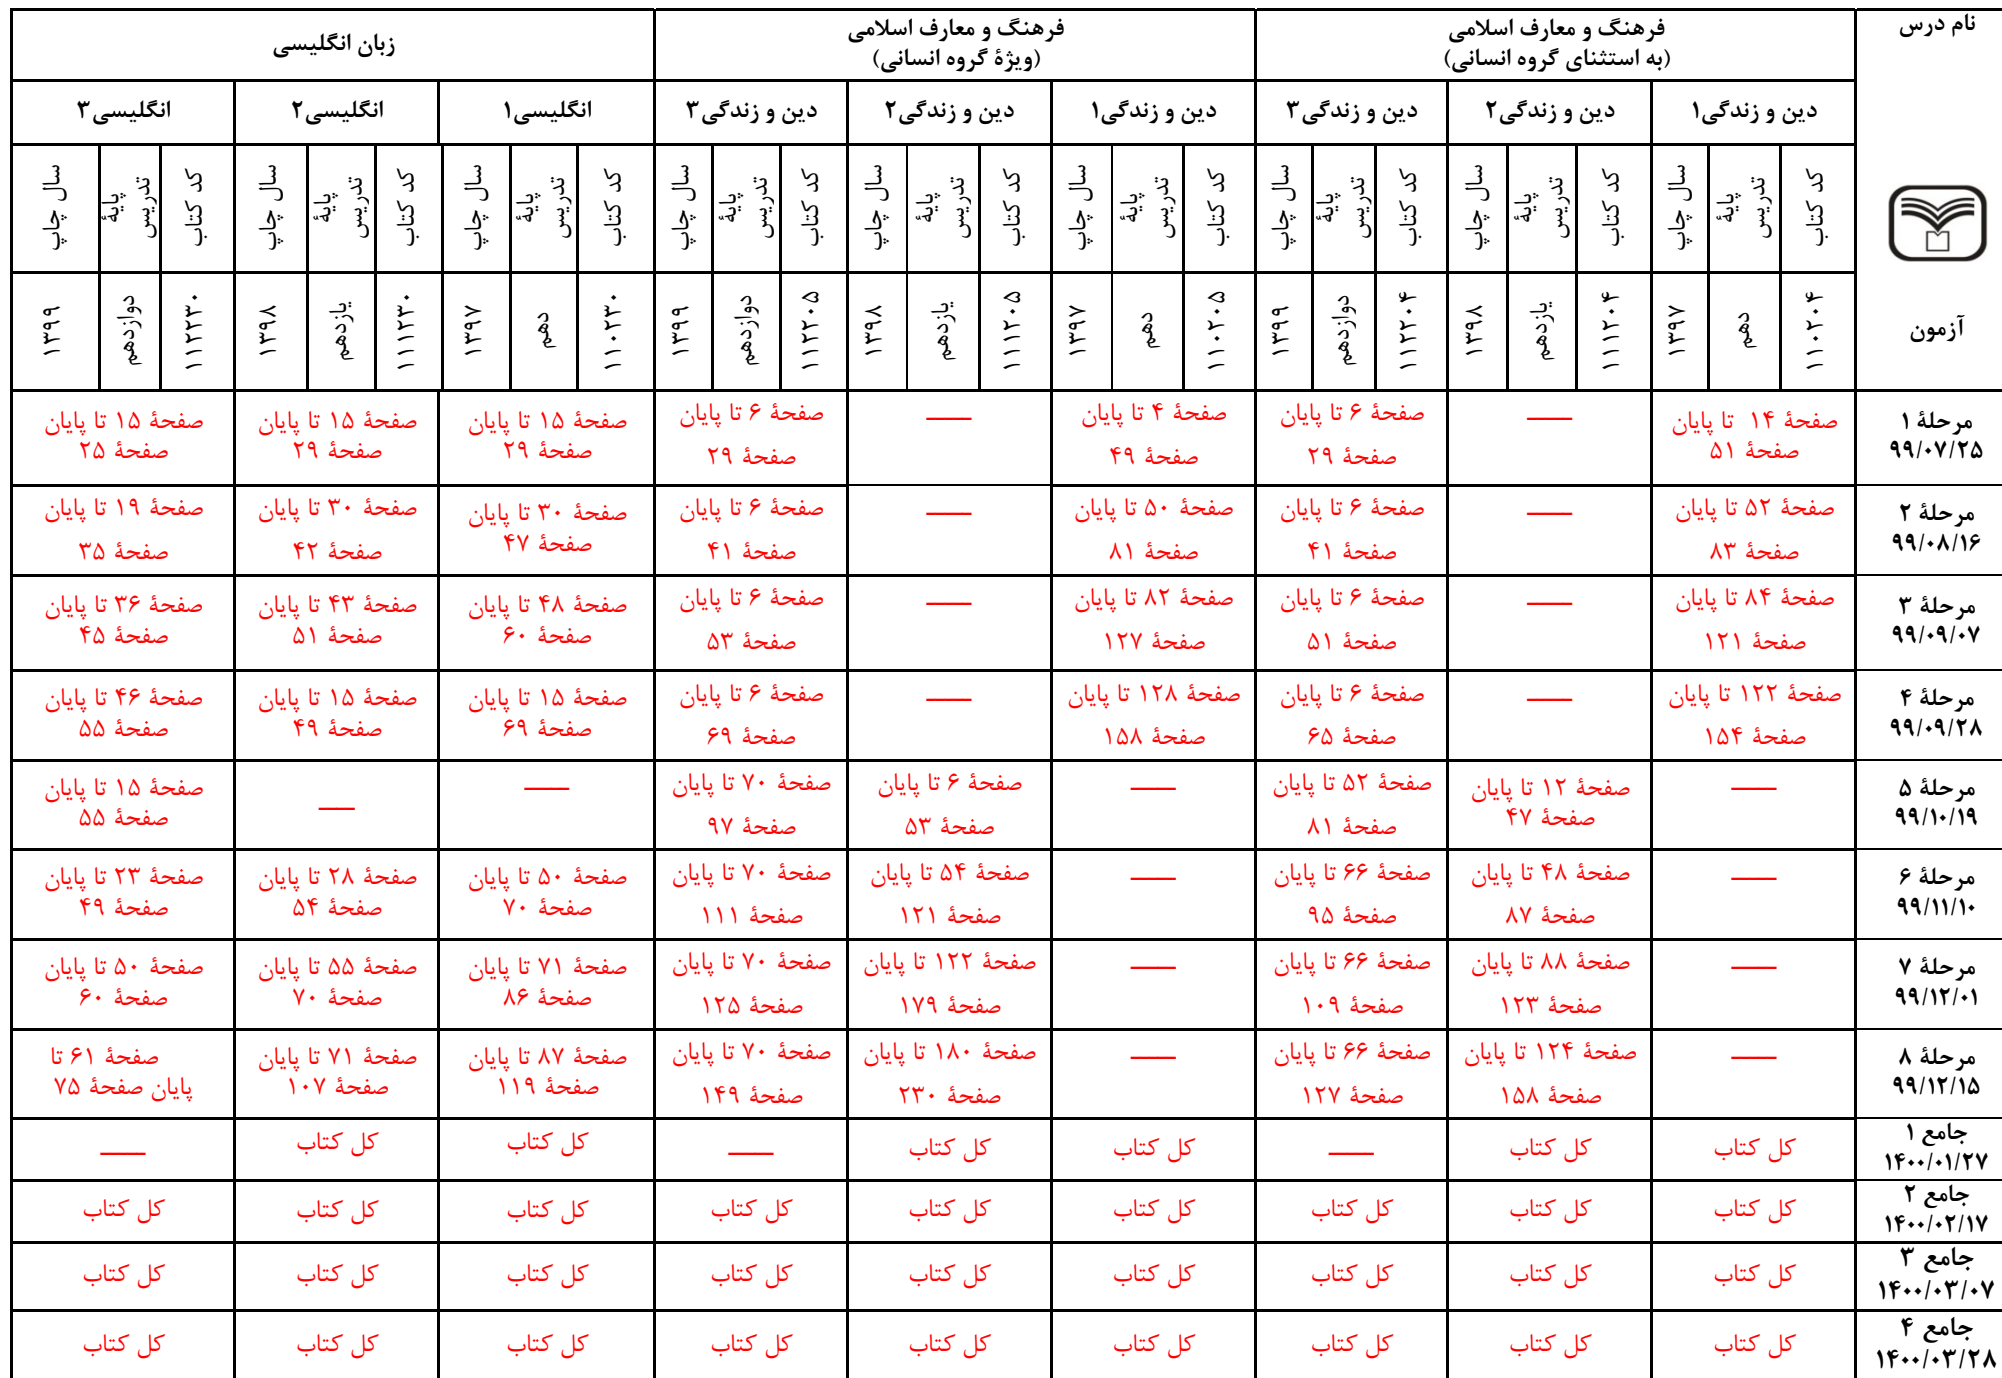 نام درس
فرهنگ و معارف اسلامی
(به استثنای گروه انسانی)
فرهنگ و معارف اسلامی
(ویژهٔ گروه انسانی)
زبان انگلیسی
دین و زندگی۱
دین و زندگی۲
دین و زندگی۳
دین و زندگی۱
دین و زندگی۲
دین و زندگی۳
انگلیسی۱
انگلیسی۲
انگلیسی۳
کد کتاب
پایهٔ
تدریس
سال چاپ
کد کتاب
پایهٔ
تدریس
سال چاپ
کد کتاب
پایهٔ
تدریس
سال چاپ
کد کتاب
پایهٔ
تدریس
سال چاپ
کد کتاب
پایهٔ
تدریس
سال چاپ
کد کتاب
پایهٔ
تدریس
سال چاپ
کد کتاب
پایهٔ
تدریس
سال چاپ
کد کتاب
پایهٔ
تدریس
سال چاپ
کد کتاب
پایهٔ
تدریس
سال چاپ
آزمون
۱۱۰۲۰۴
دهم
۱۳۹۷
۱۱۱۲۰۴
یازدهم
۱۳۹۸
۱۱۲۲۰۴
دوازدهم
۱۳۹۹
۱۱۰۲۰۵
دهم
۱۳۹۷
۱۱۱۲۰۵
یازدهم
۱۳۹۸
۱۱۲۲۰۵
دوازدهم
۱۳۹۹
۱۱۰۲۳۰
دهم
۱۳۹۷
۱۱۱۲۳۰
یازدهم
۱۳۹۸
۱۱۲۲۳۰
دوازدهم
۱۳۹۹
مرحلهٔ ۱
۹۹/۰۷/۲۵
صفحهٔ ۱۴ تا پایان
صفحهٔ ۵۱
——
صفحهٔ ۶ تا پایان
صفحهٔ ۲۹
صفحهٔ ۴ تا پایان
صفحهٔ ۴۹
——
صفحهٔ ۶ تا پایان
صفحهٔ ۲۹
صفحهٔ ۱۵ تا پایان
صفحهٔ ۲۹
صفحهٔ ۱۵ تا پایان
صفحهٔ ۲۹
صفحهٔ ۱۵ تا پایان
صفحهٔ ۲۵
مرحلهٔ ۲
۹۹/۰۸/۱۶
صفحهٔ ۵۲ تا پایان
صفحهٔ ۸۳
——
صفحهٔ ۶ تا پایان
صفحهٔ ۴۱
صفحهٔ ۵۰ تا پایان
صفحهٔ ۸۱
——
صفحهٔ ۶ تا پایان
صفحهٔ ۴۱
صفحهٔ ۳۰ تا پایان
صفحهٔ ۴۷
صفحهٔ ۳۰ تا پایان
صفحهٔ ۴۲
صفحهٔ ۱۹ تا پایان
صفحهٔ ۳۵
مرحلهٔ ۳
۹۹/۰۹/۰۷
صفحهٔ ۸۴ تا پایان
صفحهٔ ۱۲۱
——
صفحهٔ ۶ تا پایان
صفحهٔ ۵۱
صفحهٔ ۸۲ تا پایان
صفحهٔ ۱۲۷
——
صفحهٔ ۶ تا پایان
صفحهٔ ۵۳
صفحهٔ ۴۸ تا پایان
صفحهٔ ۶۰
صفحهٔ ۴۳ تا پایان
صفحهٔ ۵۱
صفحهٔ ۳۶ تا پایان
صفحهٔ ۴۵
مرحلهٔ ۴
۹۹/۰۹/۲۸
صفحهٔ ۱۲۲ تا پایان
صفحهٔ ۱۵۴
——
صفحهٔ ۶ تا پایان
صفحهٔ ۶۵
صفحهٔ ۱۲۸ تا پایان
صفحهٔ ۱۵۸
——
صفحهٔ ۶ تا پایان
صفحهٔ ۶۹
صفحهٔ ۱۵ تا پایان
صفحهٔ ۶۹
صفحهٔ ۱۵ تا پایان
صفحهٔ ۴۹
صفحهٔ ۴۶ تا پایان
صفحهٔ ۵۵
مرحلهٔ ۵
۹۹/۱۰/۱۹
——
صفحهٔ ۱۲ تا پایان
صفحهٔ ۴۷
صفحهٔ ۵۲ تا پایان
صفحهٔ ۸۱
——
صفحهٔ ۶ تا پایان
صفحهٔ ۵۳
صفحهٔ ۷۰ تا پایان
صفحهٔ ۹۷
——
——
صفحهٔ ۱۵ تا پایان
صفحهٔ ۵۵
مرحلهٔ ۶
۹۹/۱۱/۱۰
——
صفحهٔ ۴۸ تا پایان
صفحهٔ ۸۷
صفحهٔ ۶۶ تا پایان
صفحهٔ ۹۵
——
صفحهٔ ۵۴ تا پایان
صفحهٔ ۱۲۱
صفحهٔ ۷۰ تا پایان
صفحهٔ ۱۱۱
صفحهٔ ۵۰ تا پایان
صفحهٔ ۷۰
صفحهٔ ۲۸ تا پایان
صفحهٔ ۵۴
صفحهٔ ۲۳ تا پایان
صفحهٔ ۴۹
مرحلهٔ ۷
۹۹/۱۲/۰۱
——
صفحهٔ ۸۸ تا پایان
صفحهٔ ۱۲۳
صفحهٔ ۶۶ تا پایان
صفحهٔ ۱۰۹
——
صفحهٔ ۱۲۲ تا پایان
صفحهٔ ۱۷۹
صفحهٔ ۷۰ تا پایان
صفحهٔ ۱۲۵
صفحهٔ ۷۱ تا پایان
صفحهٔ ۸۶
صفحهٔ ۵۵ تا پایان
صفحهٔ ۷۰
صفحهٔ ۵۰ تا پایان
صفحهٔ ۶۰
مرحلهٔ ۸
۹۹/۱۲/۱۵
——
صفحهٔ ۱۲۴ تا پایان
صفحهٔ ۱۵۸
صفحهٔ ۶۶ تا پایان
صفحهٔ ۱۲۷
——
صفحهٔ ۱۸۰ تا پایان
صفحهٔ ۲۳۰
صفحهٔ ۷۰ تا پایان
صفحهٔ ۱۴۹
صفحهٔ ۸۷ تا پایان
صفحهٔ ۱۱۹
صفحهٔ ۷۱ تا پایان
صفحهٔ ۱۰۷
صفحهٔ ۶۱ تا
پایان صفحهٔ ۷۵
جامع ۱
۱۴۰۰/۰۱/۲۷
کل کتاب
کل کتاب
——
کل کتاب
کل کتاب
——
کل کتاب
کل کتاب
——
جامع ۲
۱۴۰۰/۰۲/۱۷
کل کتاب
کل کتاب
کل کتاب
کل کتاب
کل کتاب
کل کتاب
کل کتاب
کل کتاب
کل کتاب
جامع ۳
۱۴۰۰/۰۳/۰۷
کل کتاب
کل کتاب
کل کتاب
کل کتاب
کل کتاب
کل کتاب
کل کتاب
کل کتاب
کل کتاب
جامع ۴
۱۴۰۰/۰۳/۲۸
کل کتاب
کل کتاب
کل کتاب
کل کتاب
کل کتاب
کل کتاب
کل کتاب
کل کتاب
کل کتاب